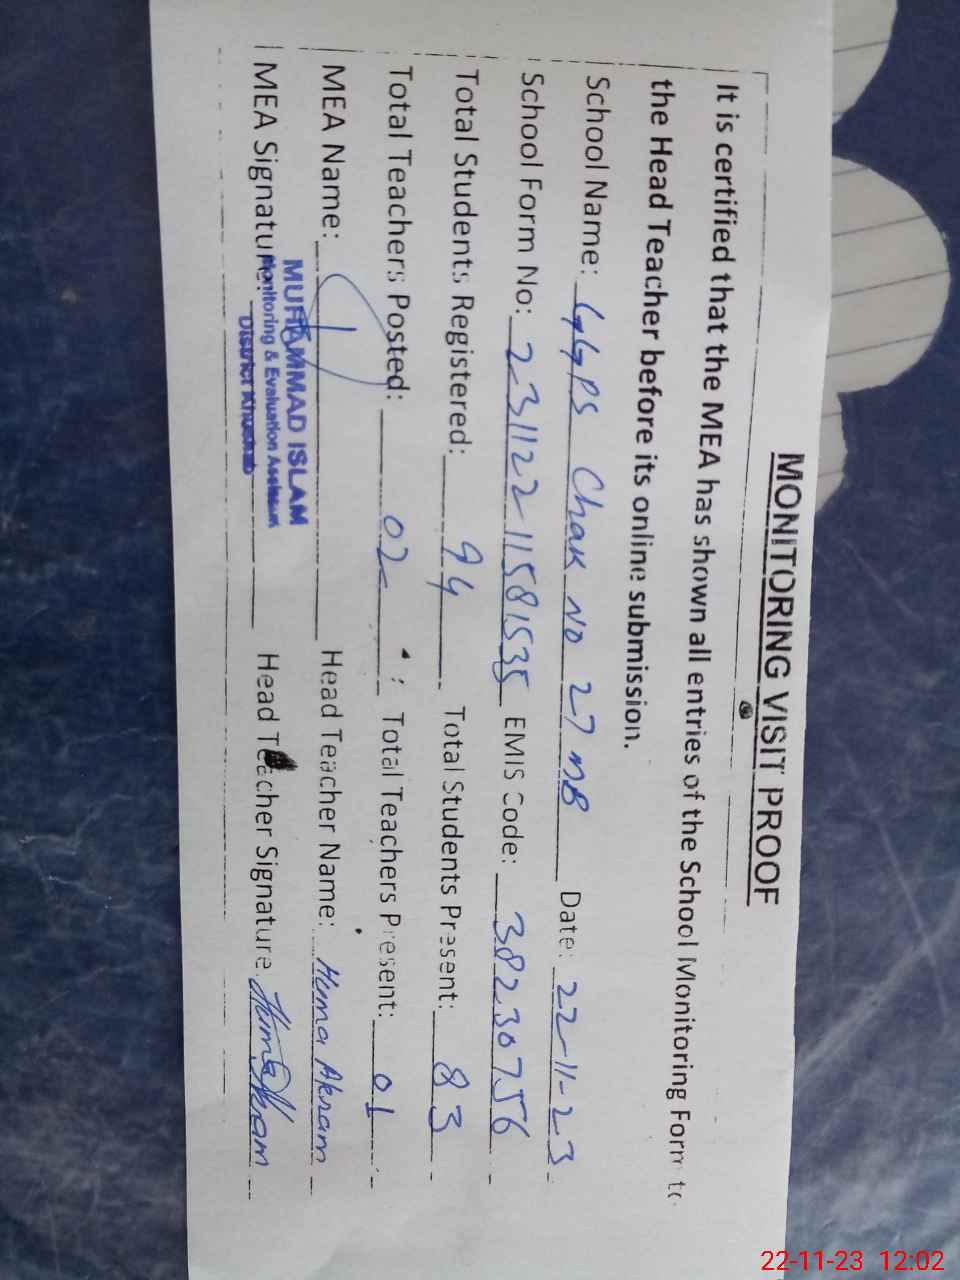 MONITORING VISIT PROOF
It is certified that the MEA has shown all entries of the School Monitoring Form to
the Head Teacher before its online submission.
School Name: GGPS Chak No 27 MB Date: 22-11-23
School Form No: 23112211581535 EMIS Code: 38230756
Total Students Registered: 94 Total Students Present: 83
Total Teachers Posted: 02 Total Teachers Present: 01
MEA Name: Head Teacher Name: Huma Akram
MUHAMMAD ISLAM
Monitoring & Evaluation Assistant
District Khushab
MEA Signature: Head Teacher Signature: Huma Akram
22-11-23 12:02